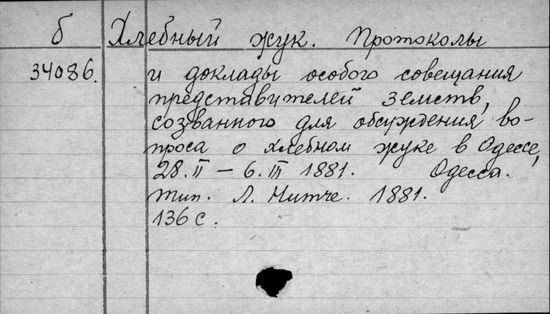 б Хлебный жук. Протоколы
34086. и доклады особого совещания
представителей земств,
созванного для обсуждения во-
проса о хлебном жуке в Одессе,
28.II – 6.III 1881. Одесса.
тип. Л. Нитче. 1881.
136 с.